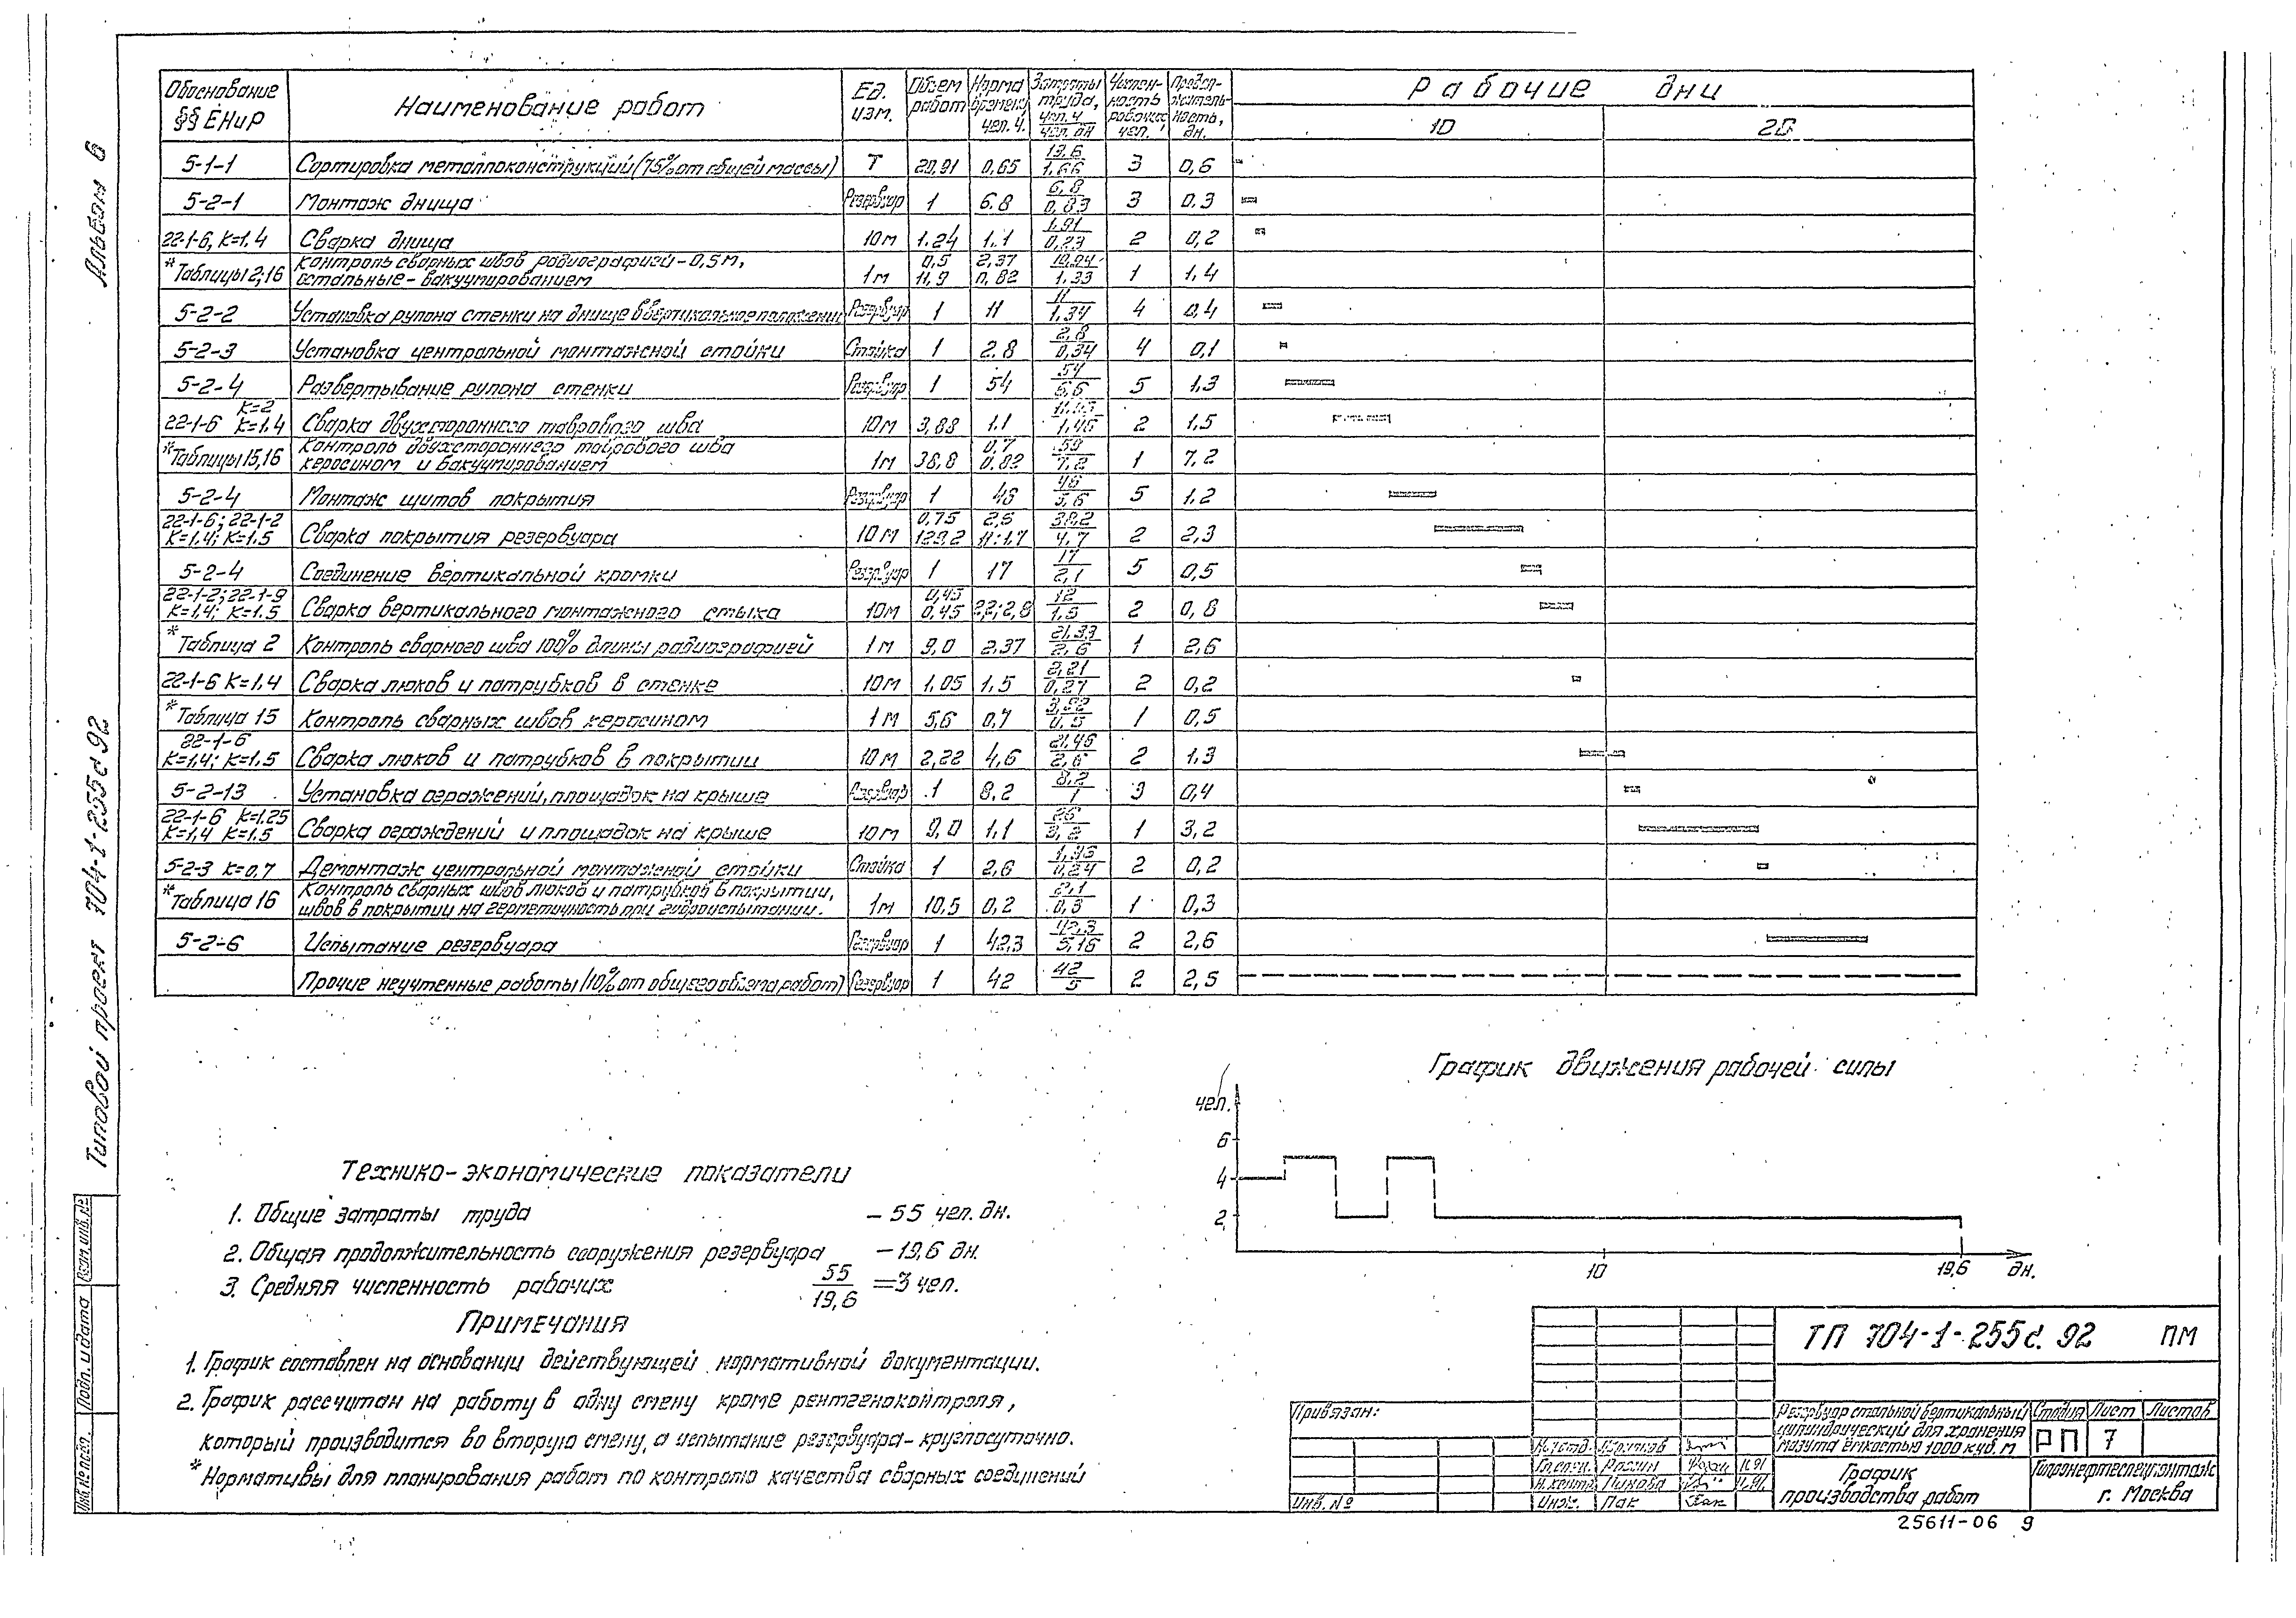 Альбом 6
Типовой проект 704-1-255с 92
Обоснование §§ ЕНиР
Наименование работ
Ед. изм.
Объем работ
Норма времени, чел. ч.
Затраты труда, чел. ч / чел. дн
Числен-ность рабочих чел.
Продол-житель-ность, дн.
Рабочие дни
10 20
5-1-1 Сортировка металлоконструкций (75% от общей массы) Т 20,91 0,65 13,6 / 1,66 3 0,6
5-2-1 Монтаж днища Резервуар 1 6.8 6,8 / 0,83 3 0.3
22-1-6, К=1.4 Сварка днища 10м 1.24 1.1 1.91 / 0,23 2 0,2
*Таблицы 2,16 Контроль сварных швов радиографией - 0,5 м, остальные - вакуумированием 1м 0,5 11,9 2,37 0,82 10,94 / 1.33 1 1.4
5-2-2 Установка рулона стенки на днище в вертикальное положение Резервуар 1 11 11 / 1,34 4 0,4
5-2-3 Установка центральной монтажной стойки Стойка 1 2.8 2,8 / 0,34 4 0,1
5-2-4 Развертывание рулона стенки Резервуар 1 54 54 / 6,6 5 1.3
22-1-6 К=2 К=1.4 Сварка двухстороннего таврового шва 10м 3,88 1.1 / 1,46 2 1.5
*Таблицы 15,16 Контроль двухстороннего таврового шва керосином и вакуумированием 1м 38,8 0,7 0.82 59 / 7,2 1 7.2
5-2-4 Монтаж щитов покрытия Резервуар 1 46 46 / 5,6 5 1.2
22-1-6; 22-1-2 К=1,4; К=1.5 Сварка покрытия резервуара 10м 0,75 129,2 2,6 11:1.7 38,2 / 4,7 2 2,3
5-2-4 Соединение вертикальной кромки Резервуар 1 17 17 / 2,1 5 0,5
22-1-2; 22-1-9 К=1,4; К=1.5 Сварка вертикального монтажного стыка 10м 0,45 0,45 2,2; 2,8 12 / 1,5 2 0,8
*Таблица 2 Контроль сварного шва 100% длины радиографией 1м 9,0 2,37 21,33 / 2,6 1 2,6
22-1-6 К=1,4 Сварка люков и патрубков в стенке 10м 1,05 1,5 2,21 / 0,27 2 0,2
*Таблица 15 Контроль сварных швов керосином 1м 5,6 0,7 3,92 / 0,5 1 0,5
22-1-6 К=1,4; К=1,5 Сварка люков и патрубков в покрытии 10м 2,22 4,6 21,46 / 2,6 2 1.3
5-2-13 Установка ограждений, площадок на крыше Резервуар 1 8.2 8,2 / 1 3 0,4
22-1-6 К=1.25 К=1,4 К=1.5 Сварка ограждений и площадок на крыше 10м 9,0 1.1 26 / 3,2 1 3,2
5-2-3 К=0,7 Демонтаж центральной монтажной стойки Стойка 1 2,6 / 0,24 2 0,2
*Таблица 16 Контроль сварных швов люков и патрубков в покрытии, швов в покрытии на герметичность при гидроиспытании. 1м 10,5 0,2 2,1 / 0,3 1 0,3
5-2-6 Испытание резервуара Резервуар 1 42,3 42,3 / 5,16 2 2,6
Прочие неучтенные работы (10% от общего объема работ) Резервуар 1 42 42 / 5 2 2,5
График движения рабочей силы
чел.
6
4
2
10 19,6 дн.
Технико-экономические показатели
1. Общие затраты труда - 55 чел. дн.
2. Общая продолжительность сооружения резервуара - 19,6 дн.
3. Средняя численность рабочих 55 / 19,6 = 3 чел.
Примечания
1. График составлен на основании действующей нормативной документации.
2. График рассчитан на работу в одну смену кроме рентгеноконтроля,
который производится во вторую смену, а испытание резервуара - круглосуточно.
* Нормативы для планирования работ по контролю качества сварных соединений
Взам. инв. №
Подп. и дата
Инв. № подл.
Привязан:
Инв. №
ТП 704-1-255с. 92 ПМ
Резервуар стальной вертикальный
цилиндрический для хранения
мазута ёмкостью 1000 куб. м
Стадия Лист Листов
РП 7
Н. контр.
Инж. Пак
График
производства работ
Гипронефтеспецмонтаж
г. Москва
25611-06 9